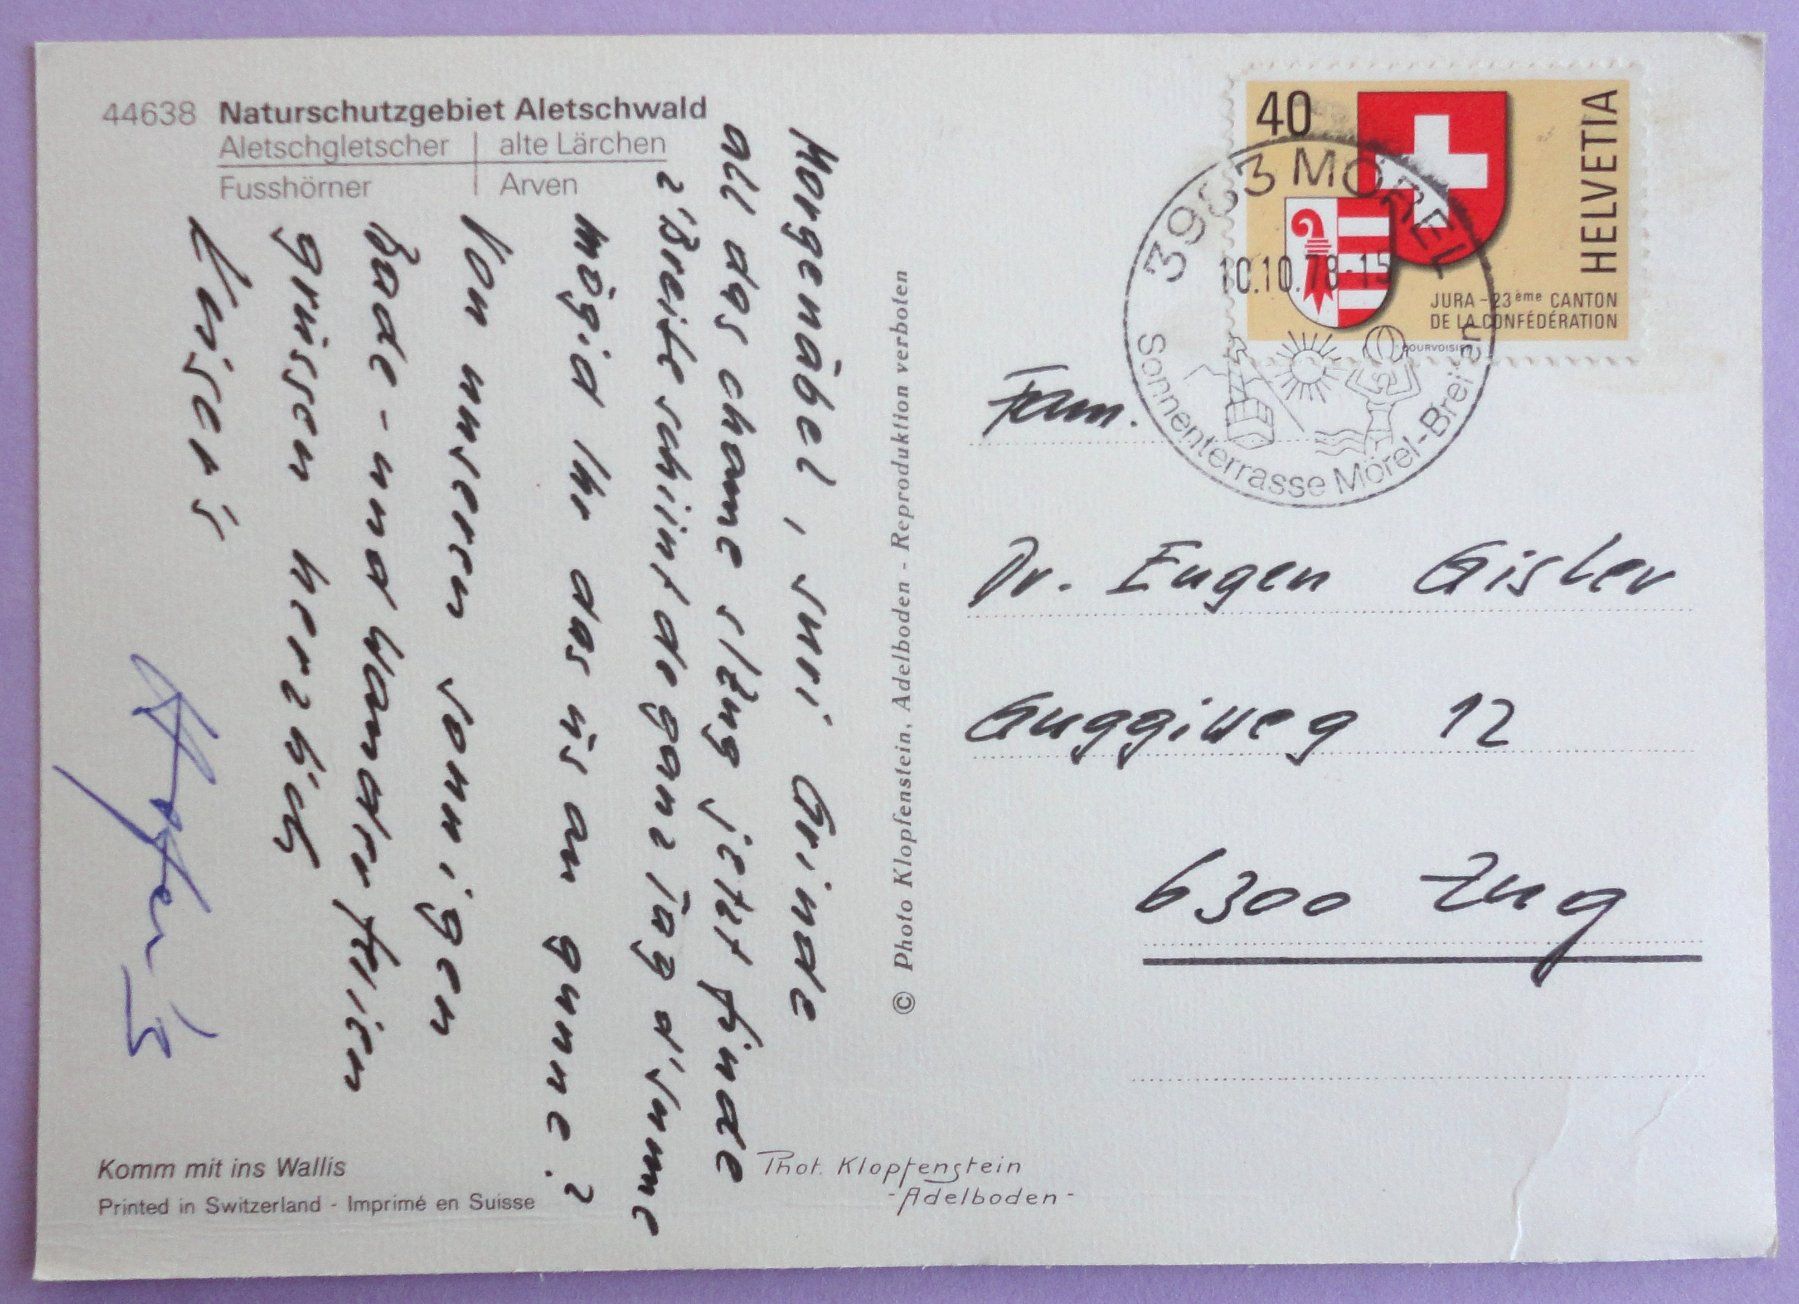 44638 Naturschutzgebiet Aletschwald
Aletschgletscher | alte Lärchen
Fusshörner | Arven
Morgenäbel, suri Grinde
all das chame z'Zug jetzt finde
z'Breite schiint de ganz Tag d'Sunne
mögid Ihr das üs au gunne?
Von unseren sonnigen
Bade- und Wanderferien
grüssen herzlich
Komm mit ins Wallis
Printed in Switzerland - Imprimé en Suisse
© Photo Klopfenstein, Adelboden - Reproduktion verboten
Phot. Klopfenstein
- Adelboden -
40
HELVETIA
JURA - 23ème CANTON
DE LA CONFÉDÉRATION
COURVOISIER
3983 MÖREL
10.10.78-15
Sonnenterrasse Mörel-Breiten
Fam.
Dr. Eugen Gisler
Guggiweg 12
6300 Zug